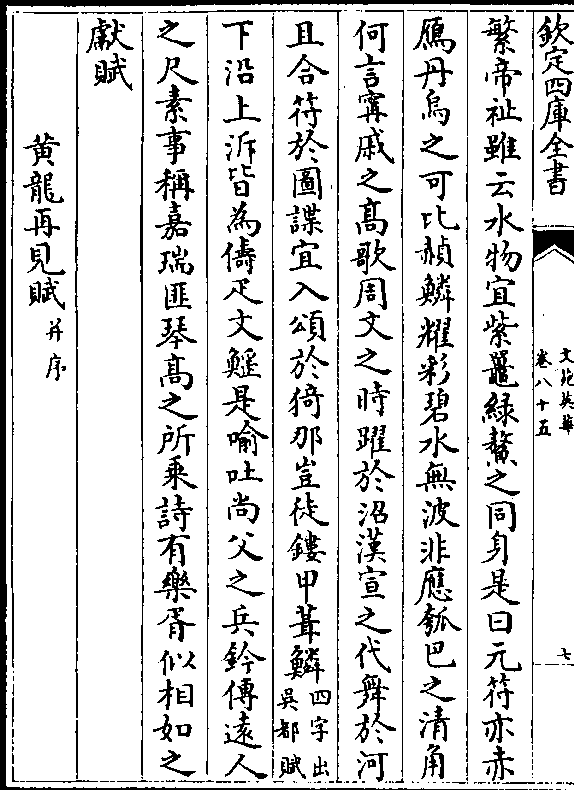 欽定四庫全書
文苑英華
卷八十五
七
繁帝祉雖云水物宜紫鼉緑鼇之同身是曰元符亦赤
鴈丹烏之可比赬鱗耀彩碧水無波非應瓠巴之清角
何言寗戚之髙歌周文之時躍於沼漢宣之代舞於河
且合符於圖諜宜入頌於猗那豈徒鏤甲葺鱗四字出
吳都賦
下沿上泝皆為儔疋文䱉是喻吐尚父之兵鈐傳逺人
之尺素事稱嘉瑞匪琴髙之所乘詩有樂胥似相如之
獻賦
黄龍再見賦并序